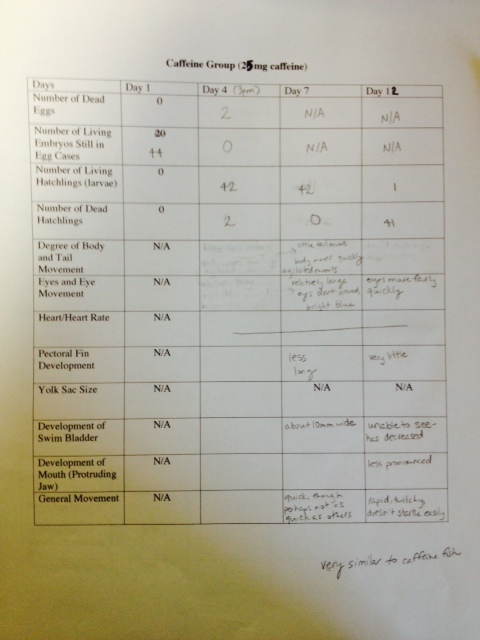 Caffeine Group (25mg caffeine)
Days Day 1 Day 4 (3pm) Day 7 Day 12
Number of Dead Eggs 0 2 N/A N/A
Number of Living Embryos Still in Egg Cases 20 44 0 N/A N/A
Number of Living Hatchlings (larvae) 0 42 42 1
Number of Dead Hatchlings 0 2 0 41
Degree of Body and Tail Movement N/A little tail body moves quickly
Eyes and Eye Movement N/A relatively large eyes dart around, bright blue eyes move fairly quickly
Heart/Heart Rate N/A
Pectoral Fin Development N/A less long very little
Yolk Sac Size N/A N/A N/A
Development of Swim Bladder N/A about 10mm wide unable to see - has decreased
Development of Mouth (Protruding Jaw) N/A less pronounced
General Movement N/A quick, though perhaps not as quick as others rapid, twitchy, doesn't startle easily
very similar to caffeine fish